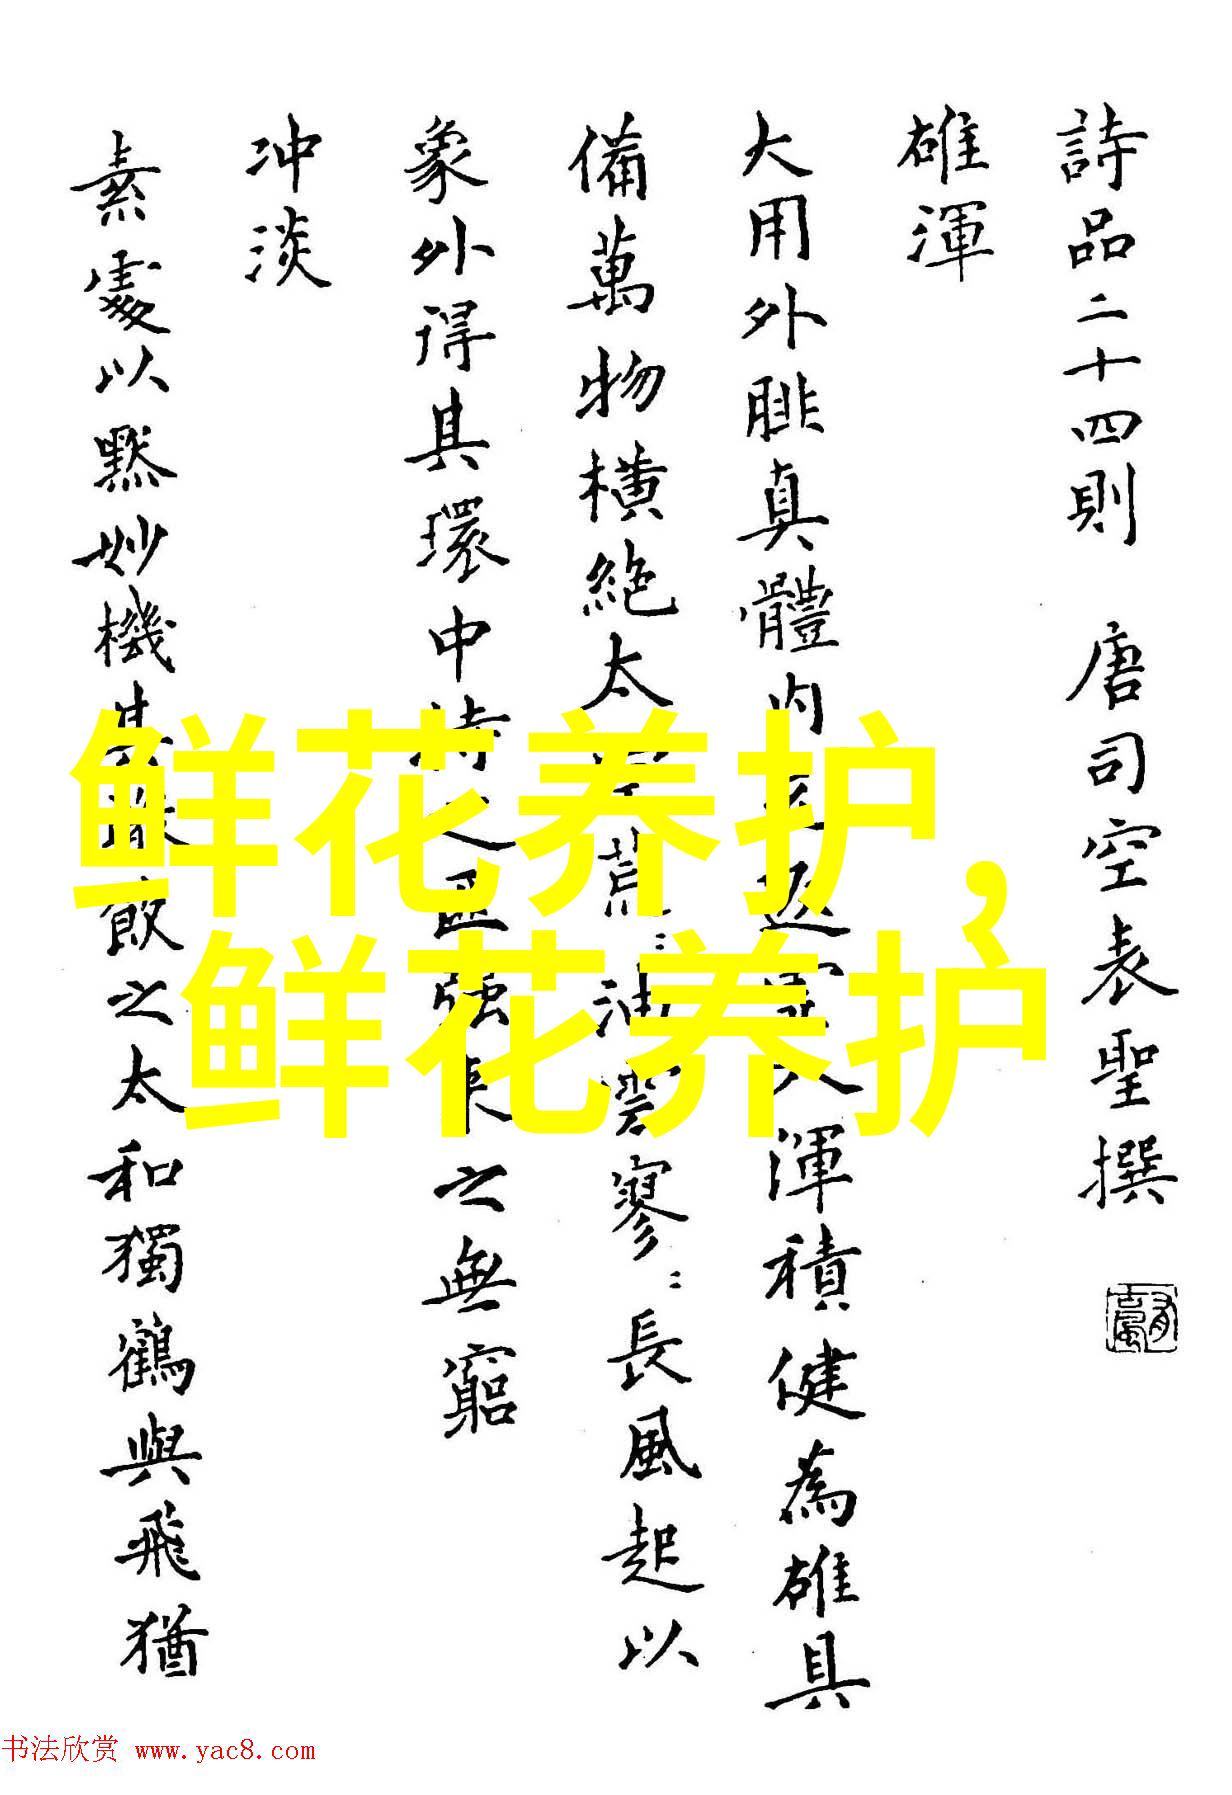 詩品二十四則 唐司空表聖撰
雄渾
大用外腓真體内充返入渾積健為雄具
備萬物橫絶太空荒〻油雲寥〻長風起以
象外得其環中持之匪强来之無窮
冲淡
素處以默妙機其微飲之太和獨鶴與飛猶
鲜花养护，
鲜花养护
书法欣赏 www.yac8.com